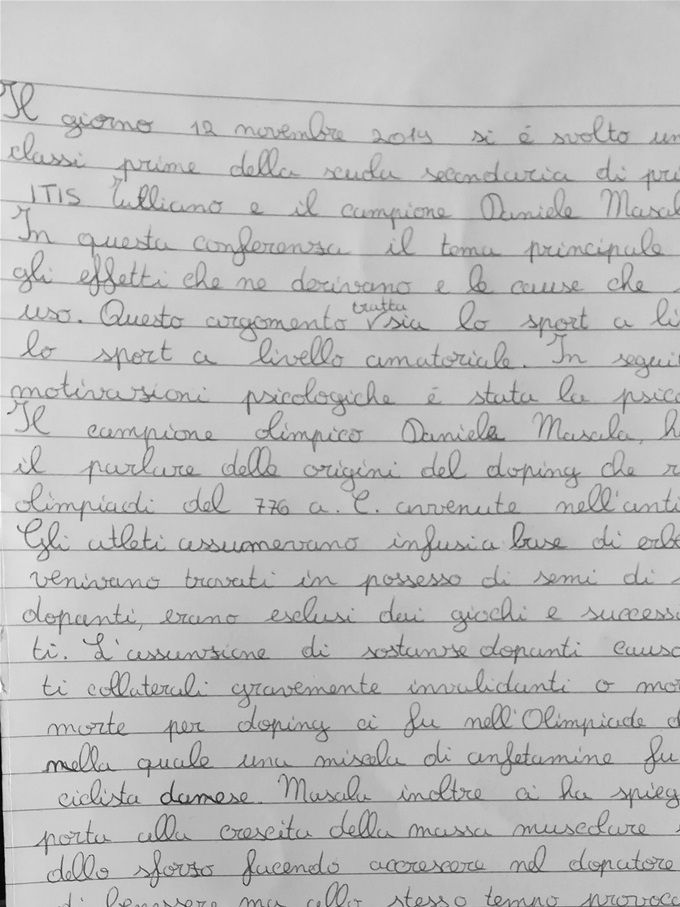 Il giorno 12 novembre 2019 si é svolto un
classi prime della scuola secondaria di pri
ITIS Tulliano e il campione Daniele Masal
In questa conferenza il tema principale
gli effetti che ne derivano e le cause che
uso. Questo argomento tratta sia lo sport a li
lo sport a livello amatoriale. In segui
motivazioni psicologiche é stata la psico
Il campione olimpico Daniele Masala, h
il parlare delle origini del doping che r
olimpiadi del 776 a.C. avvenute nell'anti
Gli atleti assumevano infusi a base di erbe
venivano trovati in possesso di semi di
dopanti, erano esclusi dai giochi e successi
ti. L'assunzione di sostanze dopanti causa
ti collaterali gravemente invalidanti o mor
morte per doping ci fu nell'Olimpiade d
nella quale una miscela di anfetamine fu
ciclista damese. Masala inoltre ci ha spieg
porta alla crescita della massa muscolare
dello sforzo facendo accrescere nel dopatore
di benessere ma allo stesso tempo provoca